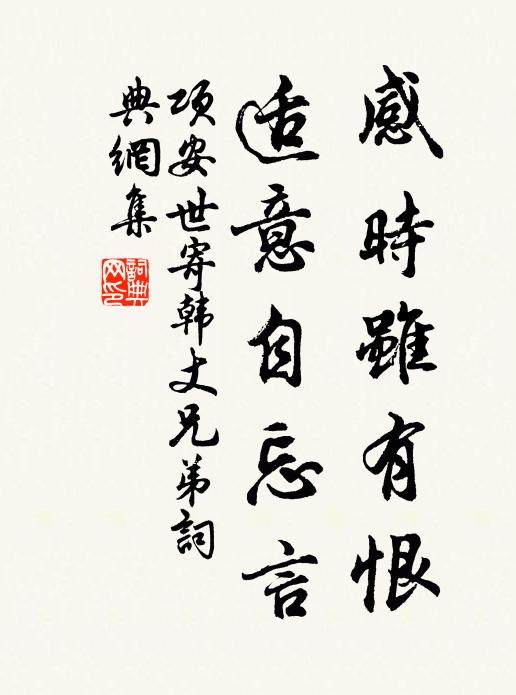 感時雖有恨
适意自忘言
項安世寄韩丈兄弟詞
典網集
詞典
网印